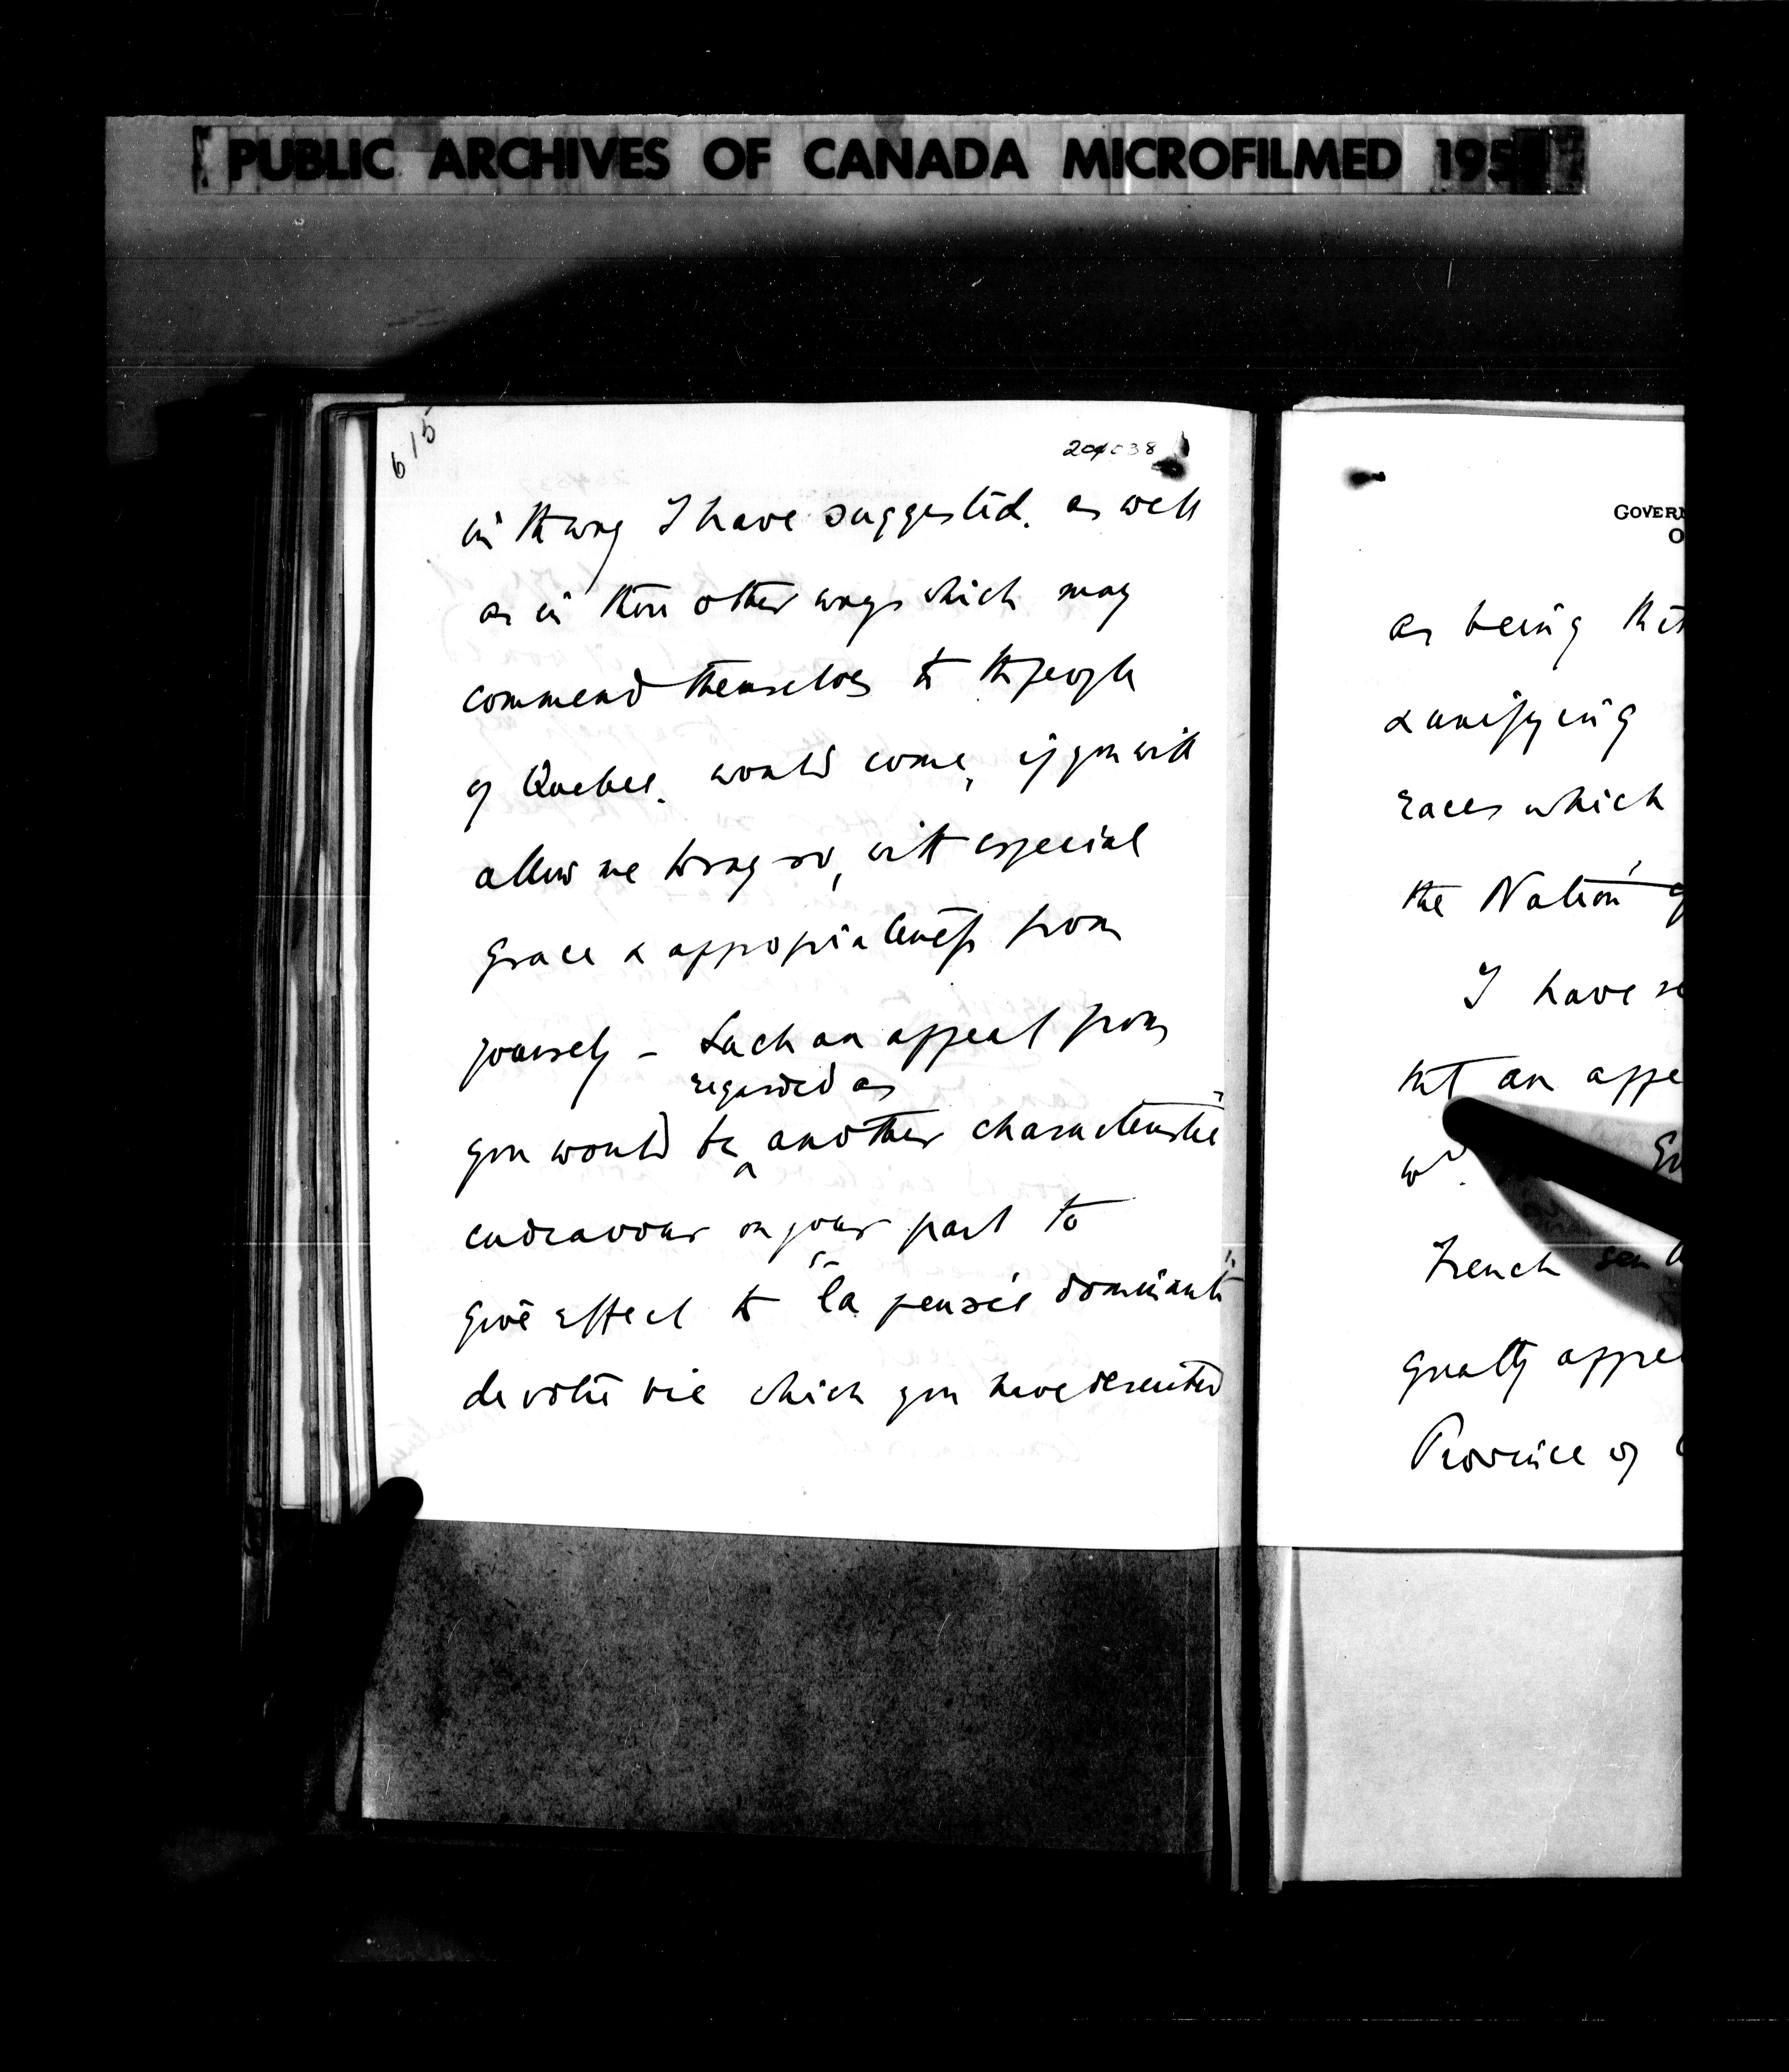 PUBLIC ARCHIVES OF CANADA MICROFILMED 195
615
204038
in the way I have suggested. as well
as in those other ways which may
commend themselves to the people
of Quebec. would come, if you will
allow me to say so, with especial
grace & appropriateness from
yourself – Such an appeal from
regarded as
you would be ^ another characteristic
endeavour on your part to
give effect to "la pensée dominante
de votre vie" which you have described
GOVERN
O
as being the
& unifying
races which
the Nation
I have se
that an appe
wd.
French sen
greatly appre
Province of